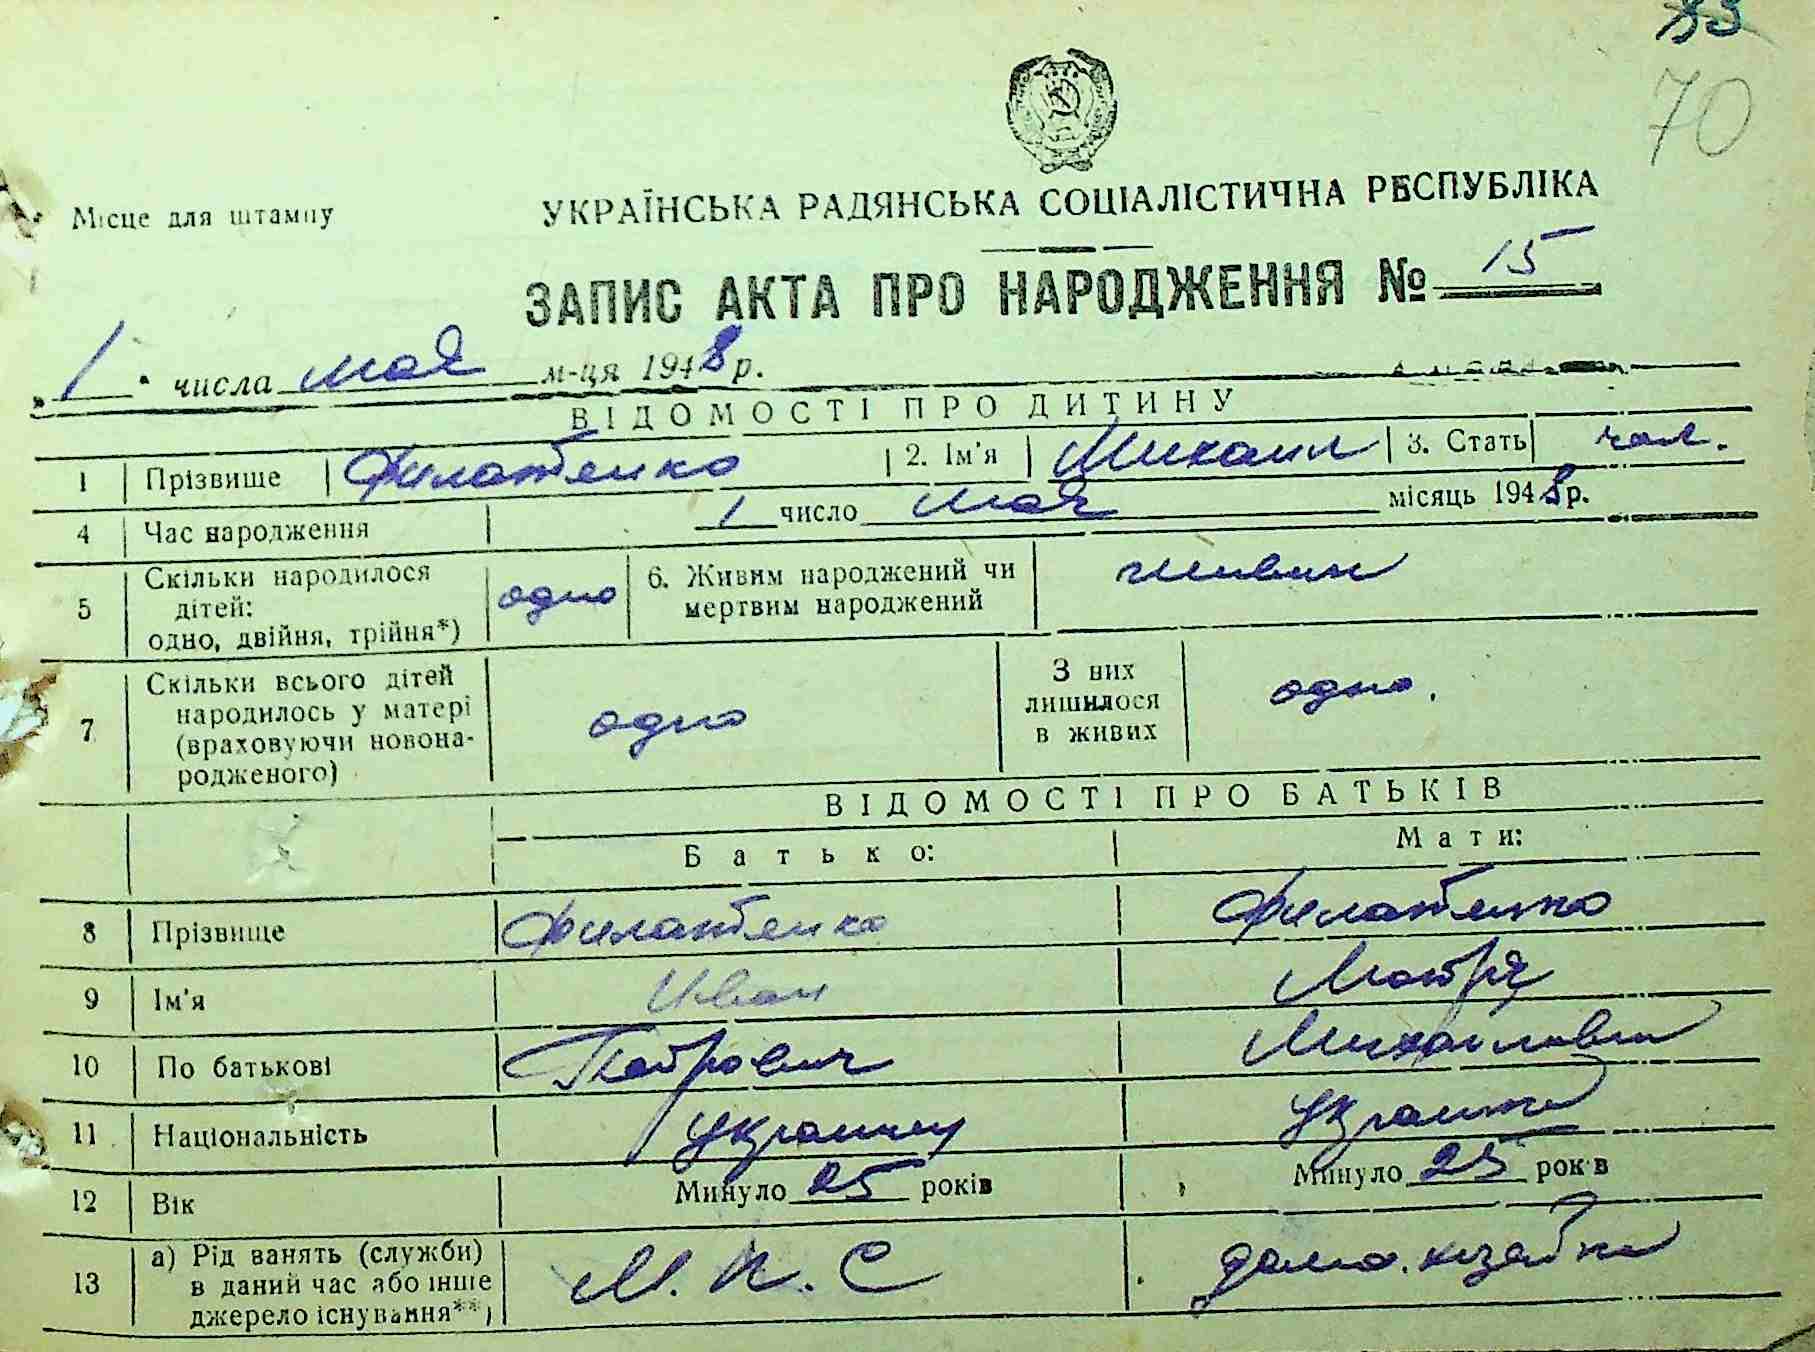 33
70
Місце для штампу
УКРАЇНСЬКА РАДЯНСЬКА СОЦІАЛІСТИЧНА РЕСПУБЛІКА
ЗАПИС АКТА ПРО НАРОДЖЕННЯ № 15
„1" числа мая м-ця 1948 р.
ВІДОМОСТІ ПРО ДИТИНУ
1 Прізвище Филатенко 2. Ім'я Михаил 3. Стать чол.
4 Час народження 1 число мая місяць 1948 р.
5 Скільки народилося дітей: одно, двійня, трійня*) одно 6. Живим народжений чи мертвим народжений живим
7 Скільки всього дітей народилось у матері (враховуючи новонародженого) одно З них лишилося в живих одно.
ВІДОМОСТІ ПРО БАТЬКІВ
Батько: Мати:
8 Прізвище Филатенко Филатенко
9 Ім'я Иван Мотря
10 По батькові Петрович Михайловна
11 Національність украинец украинка
12 Вік Минуло 25 років Минуло 25 рок в
13 а) Рід занять (служби) в даний час або інше джерело існування**) М. П. С домо.хозяйка